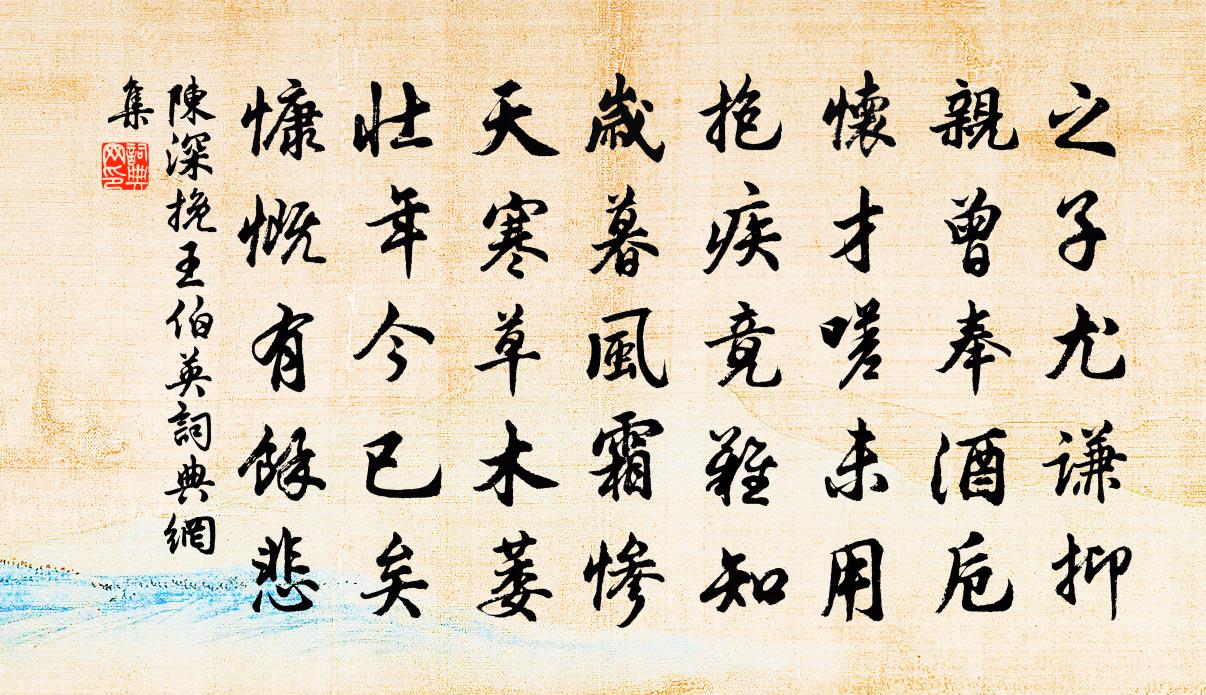 之子尤谦抑
親曾奉酒卮
懷才嗟未用
抱疾竟難知
歲暮風霜慘
天寒草木萎
壯年今已矣
慷慨有餘悲
陳深挽王伯英詞典網
集
詞典
网印